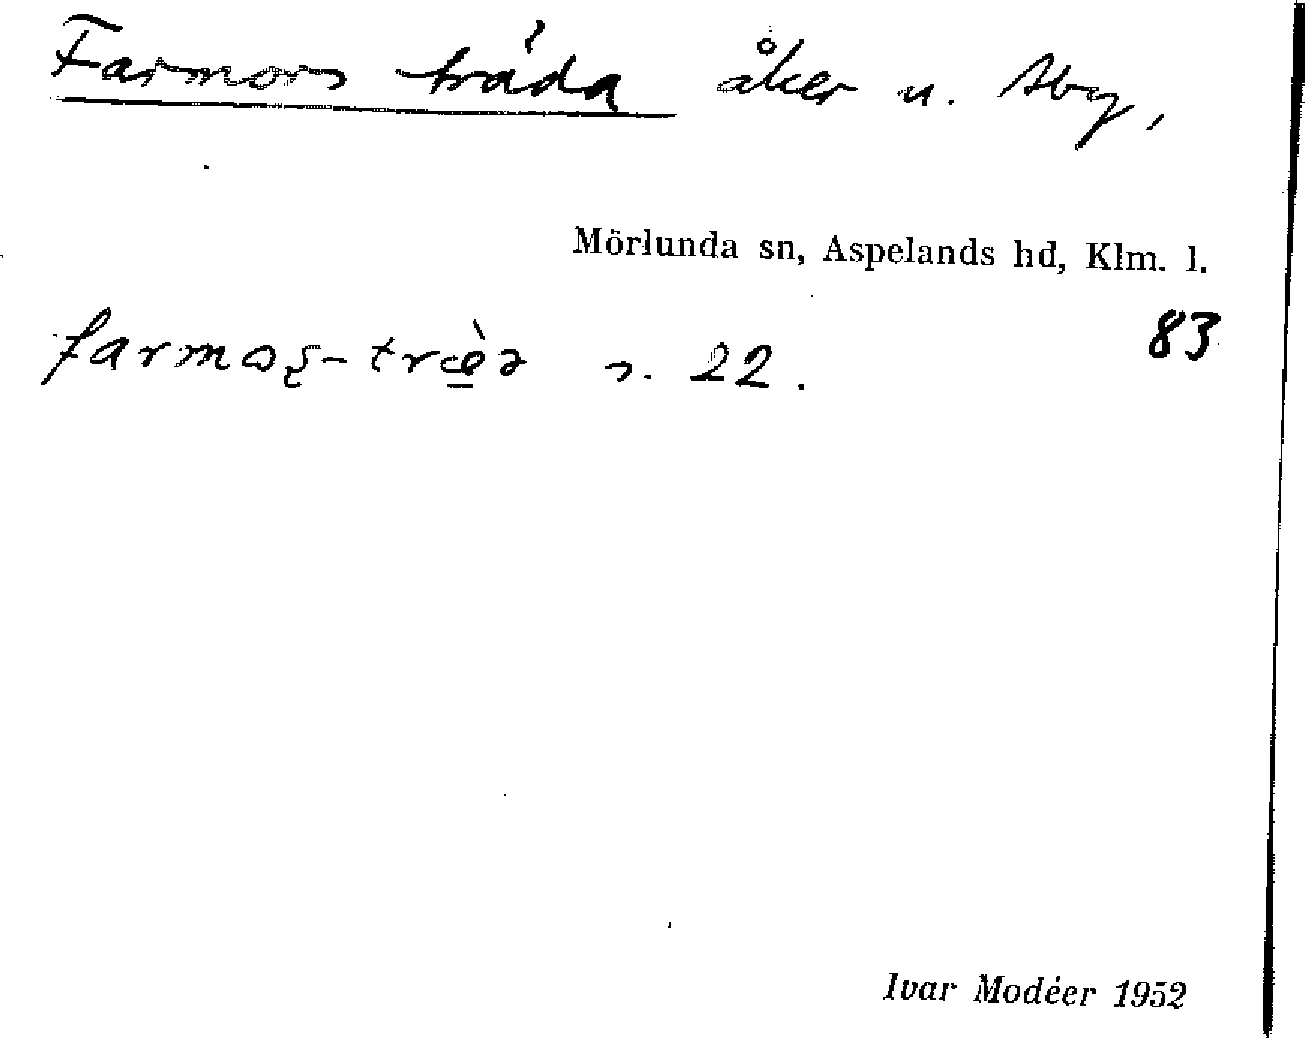 Farmors tråda åker u. Aby,
Mörlunda sn, Aspelands hd, Klm. l.
83
farmoʂ-træ̀ə s. 22.
Ivar Modéer 1952